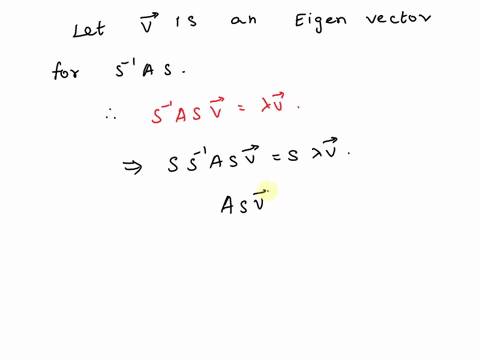 Let v⃗ is an Eigen vector
for S⁻¹ A S.
∴ S⁻¹ A S v⃗ = λv⃗.
⇒ S S⁻¹ A S v⃗ = S λv⃗.
A S v⃗